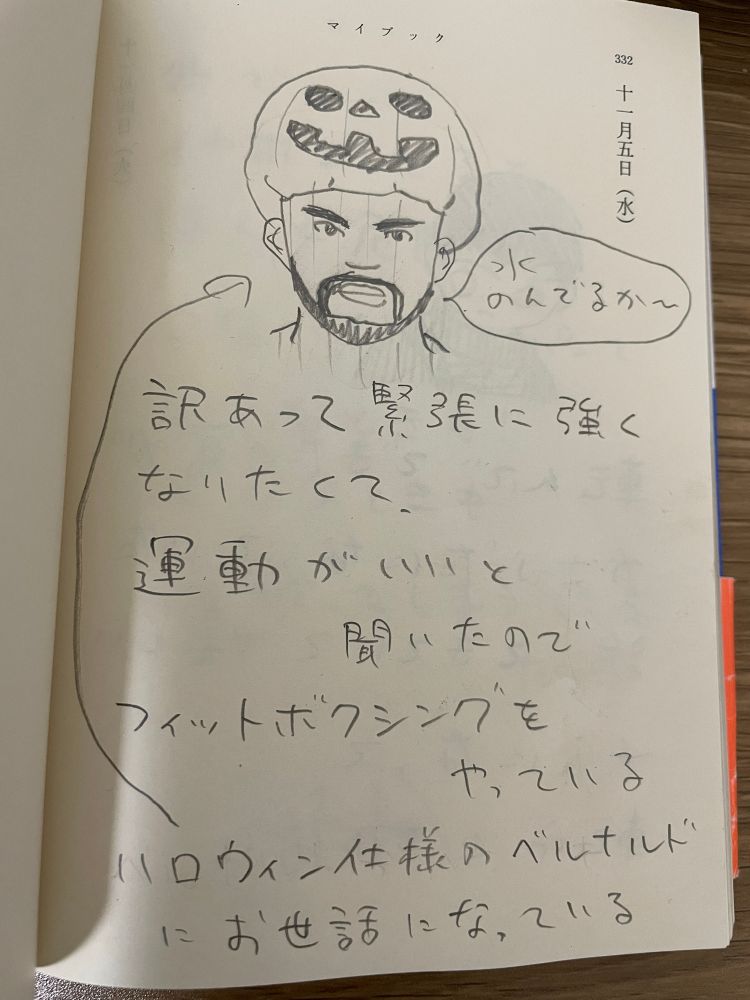 マイブック
332
十一月五日(水)
水
のんでるか〜
訳あって緊張に強く
なりたくて、
運動がいいと
聞いたので
フィットボクシングを
やっている
ハロウィン仕様のベルナルド
にお世話になっている